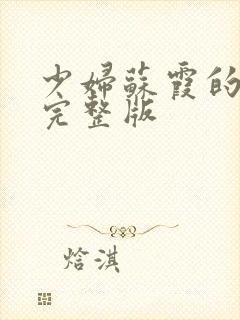 少婦蘇霞的
完整版
焓淇